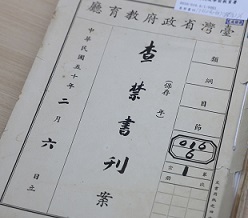 臺灣省政府教育廳
類綱目節
016
6
1
(保存　年)
查禁書刊案
中華民國五十年二月六日立